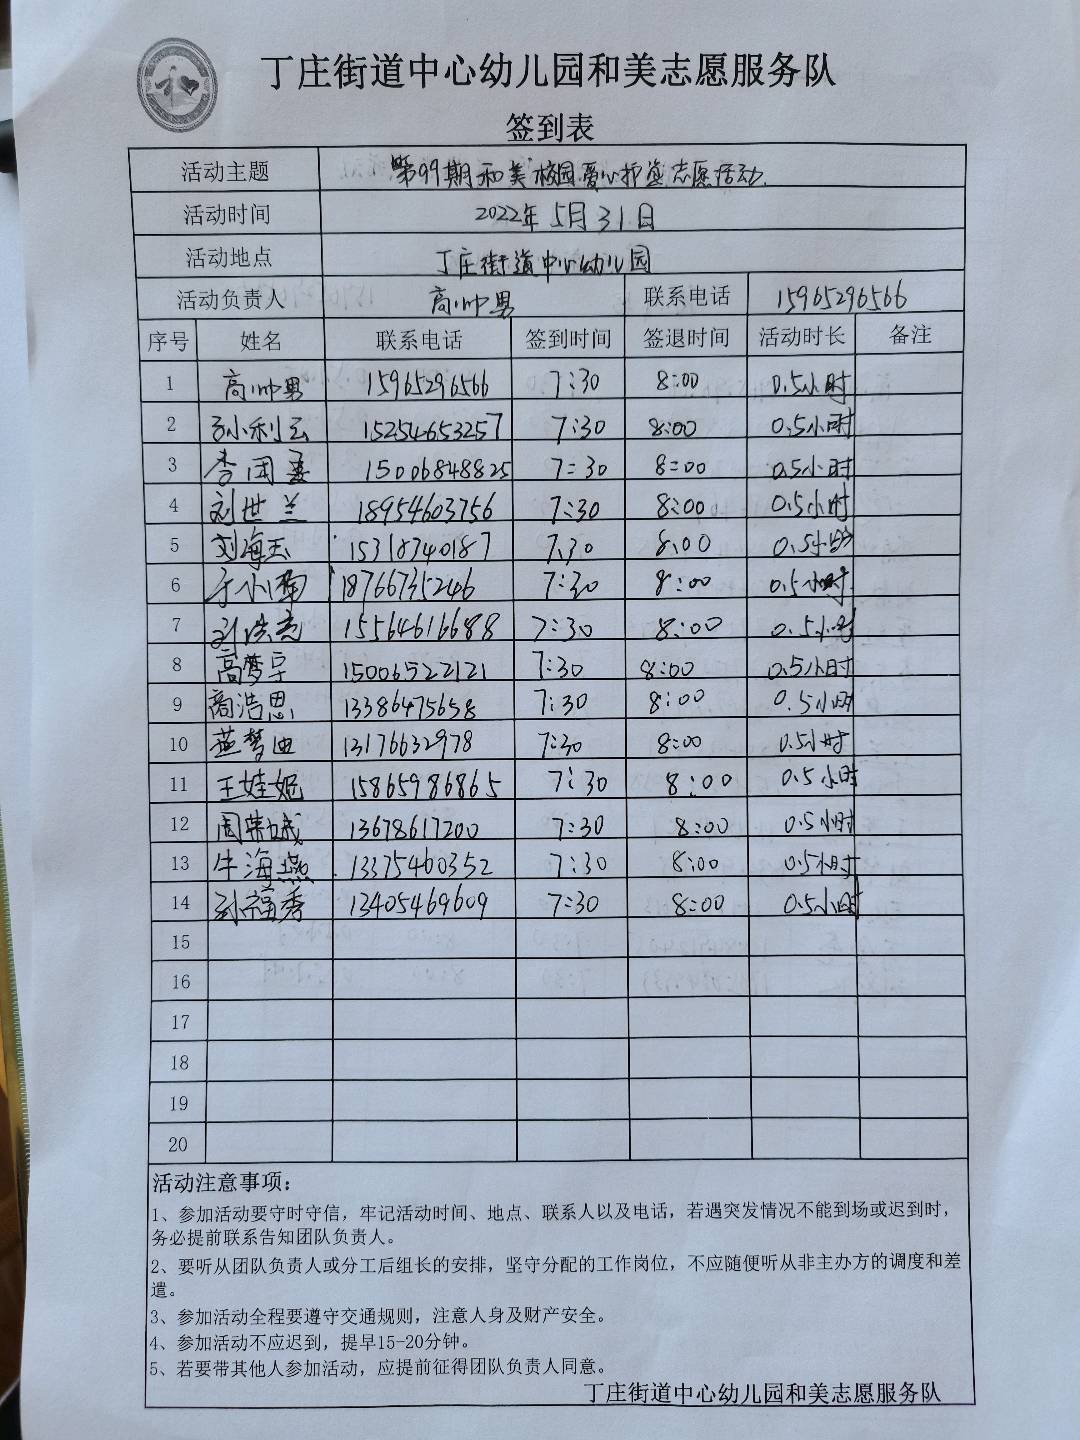 丁庄街道中心幼儿园和美志愿服务队
签到表
活动主题 第99期和美校园爱心护送志愿活动.
活动时间 2022年5月31日
活动地点 丁庄街道中心幼儿园
活动负责人 高帅男 联系电话 15965296566
序号 姓名 联系电话 签到时间 签退时间 活动时长 备注
1 高帅男 15965296566 7:30 8:00 0.5小时
2 孙利云 15254653257 7:30 8:00 0.5小时
3 李团 15006848825 7:30 8:00 0.5小时
4 刘世兰 18954603756 7:30 8:00 0.5小时
5 刘海玉 15318340187 7:30 8:00 0.5小时
6 于小菊 18766735246 7:30 8:00 0.5小时
7 刘洪亮 15564616688 7:30 8:00 0.5小时
8 高梦宇 15006522121 7:30 8:00 0.5小时
9 商浩思 13386475658 7:30 8:00 0.5小时
10 燕梦迪 13176632978 7:30 8:00 0.5小时
11 王娃姬 15865986865 7:30 8:00 0.5小时
12 周荣城 13678617200 7:30 8:00 0.5小时
13 牛海燕 13375460352 7:30 8:00 0.5小时
14 孙福秀 13405469609 7:30 8:00 0.5小时
15
16
17
18
19
20
活动注意事项：
1、参加活动要守时守信，牢记活动时间、地点、联系人以及电话，若遇突发情况不能到场或迟到时，
务必提前联系告知团队负责人。
2、要听从团队负责人或分工后组长的安排，坚守分配的工作岗位，不应随便听从非主办方的调度和差
遣。
3、参加活动全程要遵守交通规则，注意人身及财产安全。
4、参加活动不应迟到，提早15-20分钟。
5、若要带其他人参加活动，应提前征得团队负责人同意。
丁庄街道中心幼儿园和美志愿服务队